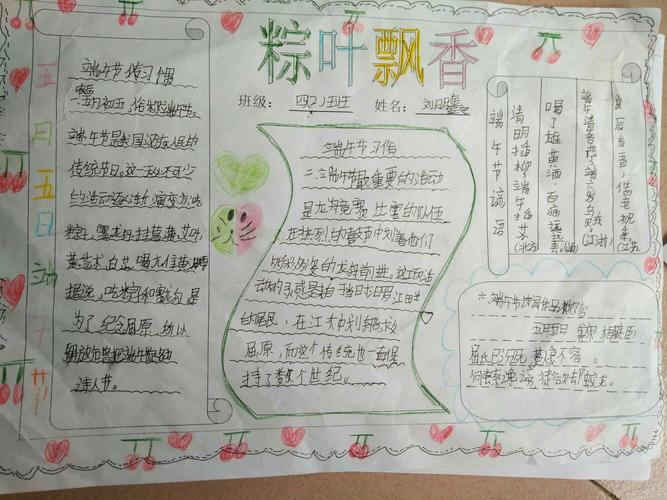 粽叶飘香
班级：四2班 姓名：刘
五月五日
端午节传习惯
五月初五，
端午节是我国汉族人民的
传统节日。这一天必不可少
的活动逐渐演变为吃
粽子，赛龙舟，挂菖蒲、艾叶，
薰苍术、白芷，喝雄黄酒
据说，吃粽子和赛龙舟是
为了纪念屈原，所以
解放后曾把端午节
诗人节。
端午节习俗
二、端午节最重要的活动
是龙舟竞赛，比赛的队伍
在热烈的鼓声中划着他们
多彩多姿的龙舟前进。这项活
动的灵感是来于当时汨罗江畔
的居民，在江中划船救
屈原，而这个传统也一直保
持了数个世纪。
端午节谚语
清明插柳，端午插艾（北方）
喝了雄黄酒，百病远远丢。
（江浙）
六、端午节诗词
五月五日 宋 梅尧臣
屈氏已沉死，楚人哀不容。
何尝奈谗谤，徒欲却蛟龙。